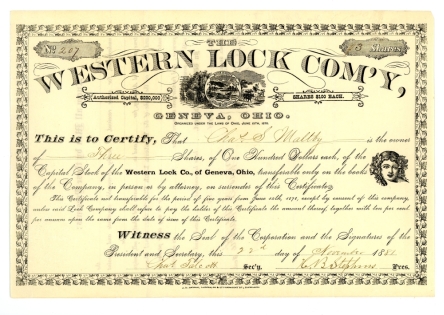 No 207
3 Shares
THE
WESTERN LOCK COM'Y,
Authorized Capital, $200,000
SHARES $100 EACH.
GENEVA, OHIO.
ORGANIZED UNDER THE LAWS OF OHIO, JUNE
This is to Certify, That Maltby is the owner
of Three Shares, of One Hundred Dollars each, of the
Capital Stock of the Western Lock Co., of Geneva, Ohio, transferable only on the books
of the Company, in person or by attorney, on surrender of this Certificate.
This Certificate not transferable for the period of five years from June except by consent of this company,
under said Lock Company shall agree to pay the holder of this Certificate the amount thereof, together with ten per cent
per annum upon the same from the date of issue of this Certificate.
Witness the Seal of the Corporation and the Signatures of the
President and Secretary, this 22d day of November 1880
Sec'y. N B Stephens Pres.